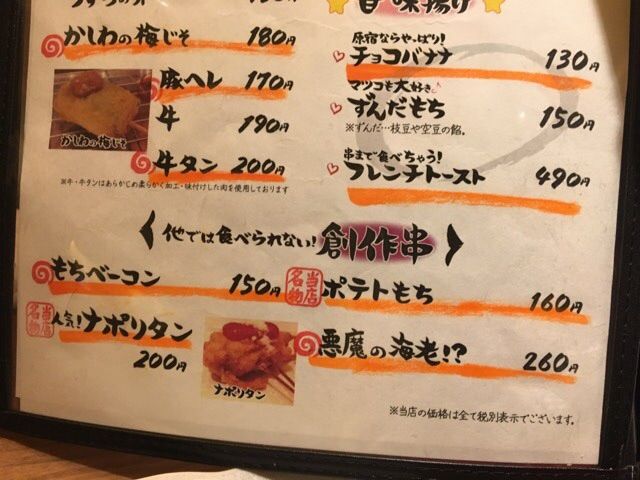 かしわの梅じそ 180円
豚ヘレ 170円
牛 190円
かしわの梅じそ
牛タン 200円
※牛・牛タンはあらかじめ柔らかく加工・味付けした肉を使用しております
味揚げ
原宿ならやっぱり!
チョコバナナ 130円
マツコも大好き♪
ずんだもち 150円
※ずんだ…枝豆や空豆の餡。
串まで食べちゃう!
フレンチトースト 490円
他では食べられない!創作串
もちベーコン 150円
当店名物 ポテトもち 160円
当店名物 人気!ナポリタン
200円
ナポリタン
悪魔の海老!? 260円
※当店の価格は全て税別表示でございます。